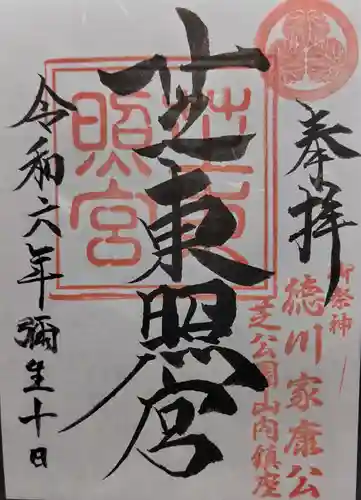 奉拝
御祭神
徳川家康公
芝公園山内鎮座
芝東照宮
芝東照宮
令和六年彌生十日